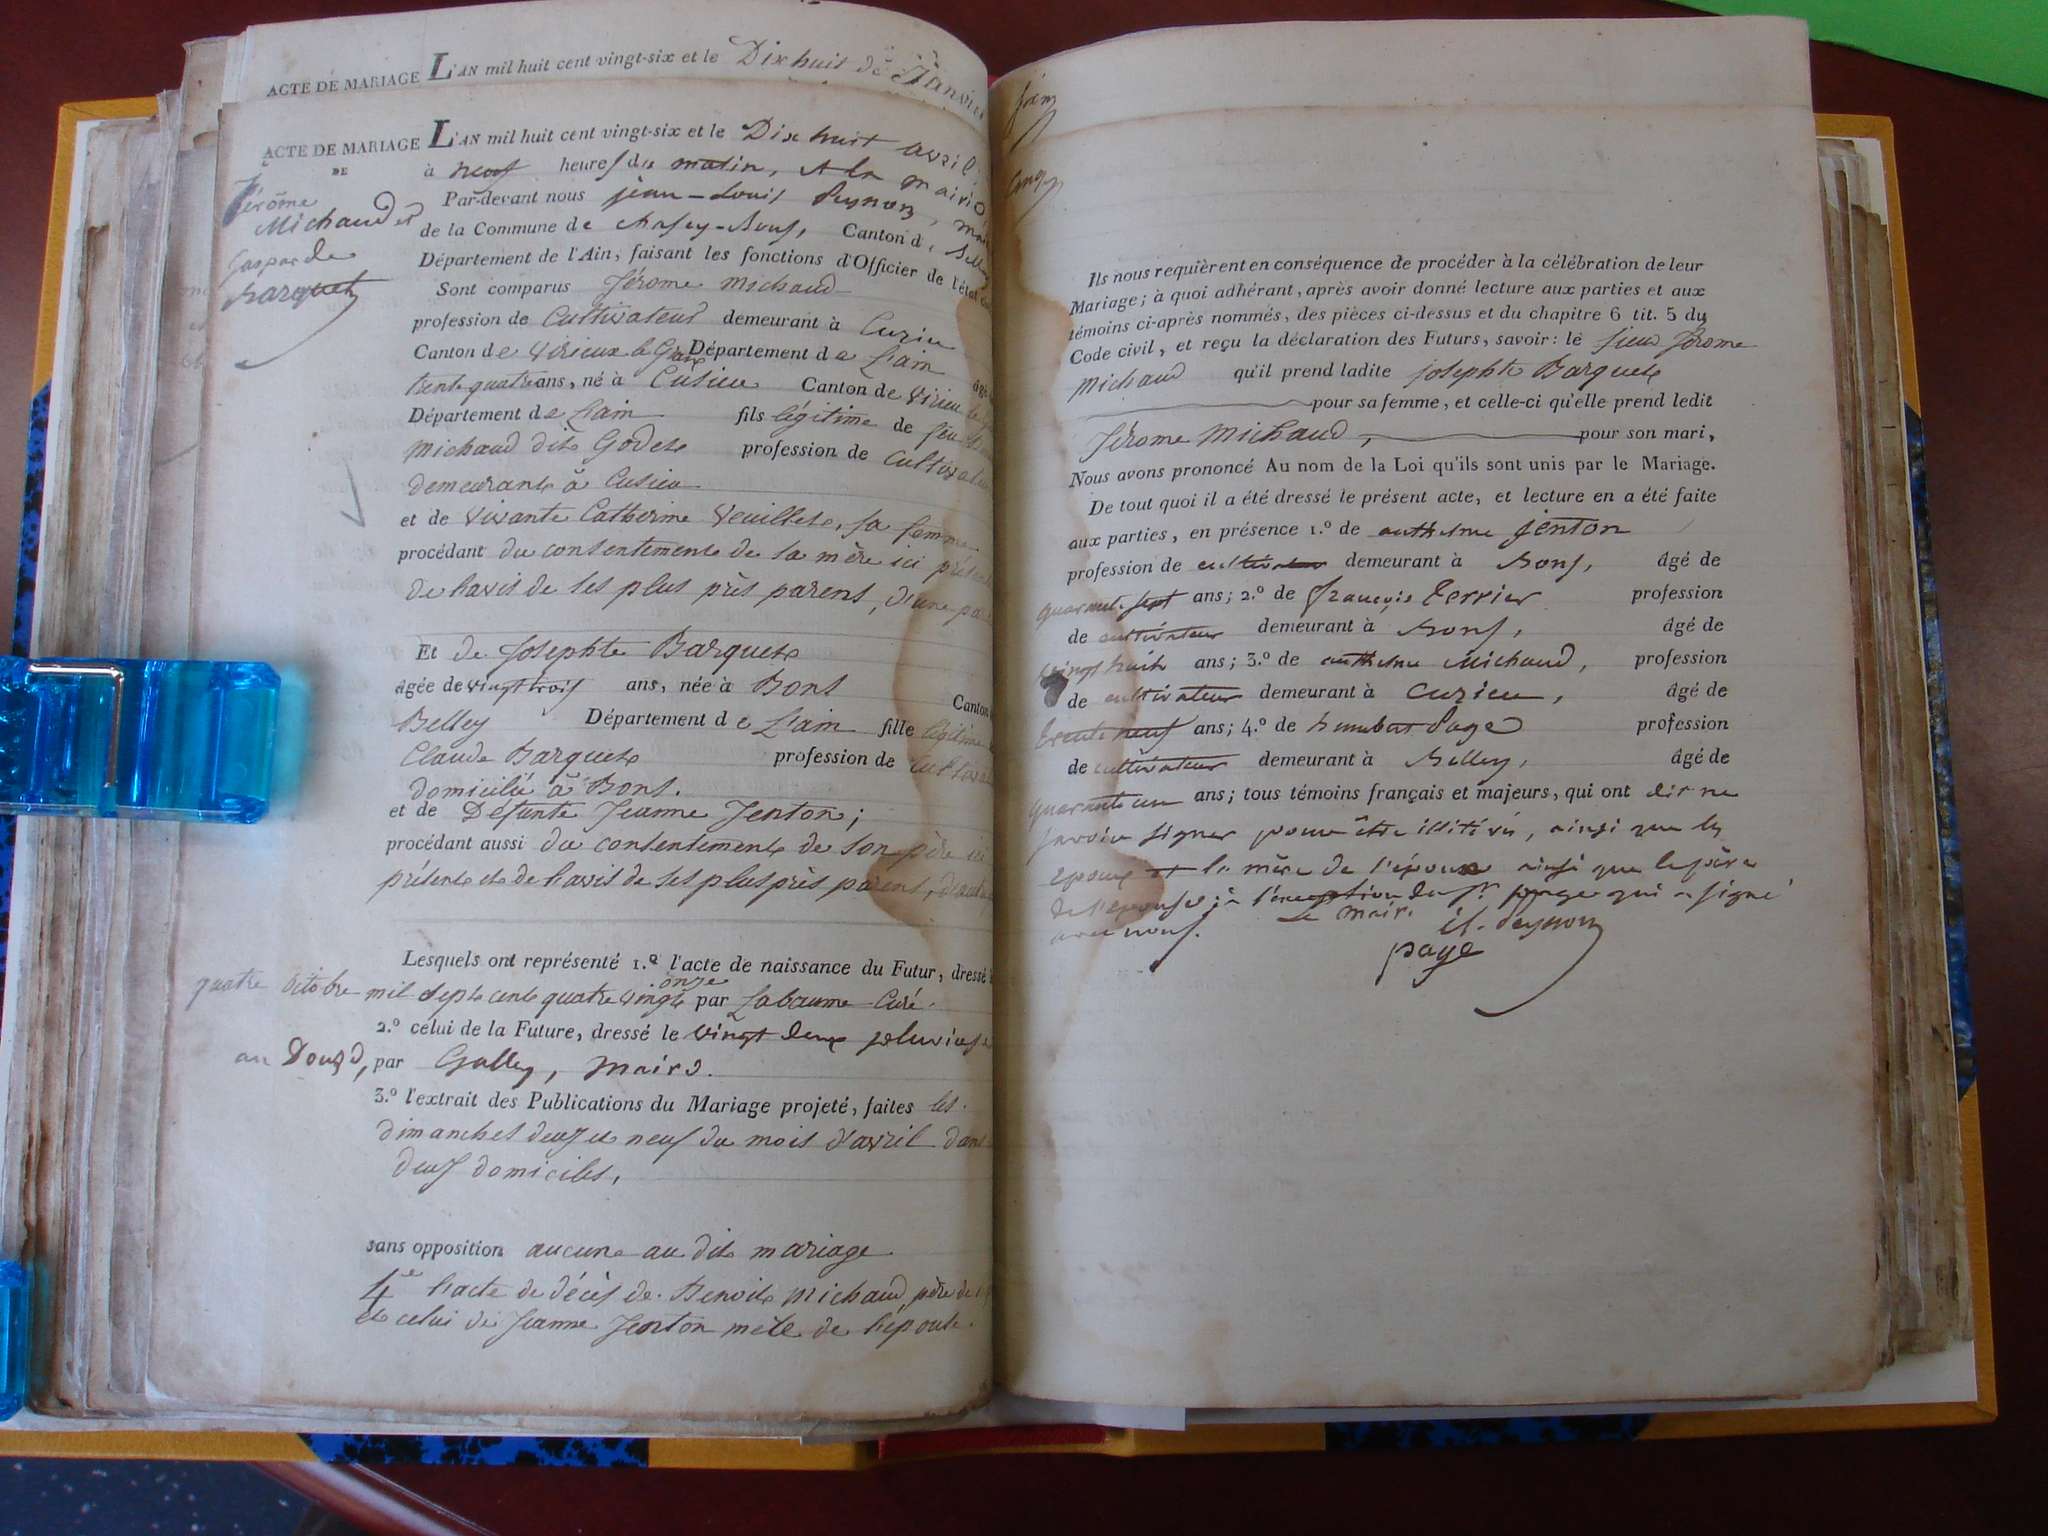 ACTE DE MARIAGE L'AN mil huit cent vingt-six et le Dix huit de Janvier
ACTE DE MARIAGE L'AN mil huit cent vingt-six et le Dix huit avril
DE
Jérôme
Michaud et
Gasparde
Barquet
à neuf heures du matin, A la Mairie,
Par-devant nous jean-Louis Peysson,
de la Commune de Chasey-Bons, Canton d, Belley
Département de l'Ain, faisant les fonctions d'Officier de l'état
Sont comparus Jérome Michaud
profession de Cultivateur demeurant à Cuzieu
Canton de Virieux le Grand Département de L'ain
trente quatre ans, né à Cusieu Canton de Virieu le
Département de L'ain fils légitime de feu
Michaud dit Godet profession de Cultivateur
demeurant à Cusieu
et de vivante Catherine Veuillet, sa femme
procédant du consentement de sa mère ici
de l'avis de ses plus près parens, d'une
Et de Josephte Barquet
âgée de vingt trois ans, née à Bons Canton
Belley Département de L'ain fille légitime
Claude Barquet profession de
domicilié à Bons.
et de Défunte Jeanne Jenton;
procédant aussi du consentement de son père ici
présent et de l'avis de ses plus près parens,
Lesquels ont représenté 1.º l'acte de naissance du Futur, dressé
quatre octobre mil sept cent quatre vingt onze par Labaume Curé.
2.º celui de la Future, dressé le vingt deux pluviose
an Douze, par Galley, maire.
3.º l'extrait des Publications du Mariage projeté, faites les
dimanches deux et neuf du mois d'avril dans
deux domiciles,
sans opposition aucune au dit mariage
4e l'acte de décès de Benoit Michaud, père de
et celui de Jeanne Jenton mère de l'épouse.
Ils nous requièrent en conséquence de procéder à la célébration de leur
Mariage; à quoi adhérant, après avoir donné lecture aux parties et aux
témoins ci-après nommés, des pièces ci-dessus et du chapitre 6 tit. 5 du
Code civil, et reçu la déclaration des Futurs, savoir: le sieur Jérome
Michaud qu'il prend ladite josephte Barquet
pour sa femme, et celle-ci qu'elle prend ledit
Jérome Michaud, pour son mari,
Nous avons prononcé Au nom de la Loi qu'ils sont unis par le Mariage.
De tout quoi il a été dressé le présent acte, et lecture en a été faite
aux parties, en présence 1.º de anthelme jenton
profession de cultivateur demeurant à Bons, âgé de
quarante sept ans; 2.º de françois Terrier profession
de cultivateur demeurant à Bons, âgé de
vingt huit ans; 3.º de anthelme Michaud, profession
de cultivateur demeurant à Curieu, âgé de
trente neuf ans; 4.º de humbert Page profession
de cultivateur demeurant à Belley, âgé de
quarante un ans; tous témoins français et majeurs, qui ont dit ne
savoir signer pour être illitérés, ainsi que les
epoux et la mère de l'époux ainsi que le père
de l'épouse; à l'exception du sr. page qui a signé
avec nous. Le Maire
page